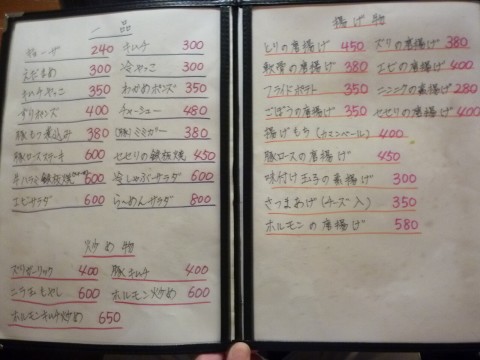 一品
ギョーザ 240 キムチ 300
えだまめ 300 冷やっこ 300
キムチやっこ 350 わかめポンズ 350
ずりポンズ 400 チャーシュー 480
豚もつ煮込み 380 (豚)ミミガー 380
豚ロースステーキ 600 セセリの鉄板焼 450
牛ハラミ鉄板焼 600 冷しゃぶサラダ 600
エビサラダ 600 らーめんサラダ 800
炒め物
ズリガーリック 400 豚キムチ 400
ニラ玉もやし 600 ホルモン炒め 600
ホルモンキムチ炒め 650
揚げ物
とりの唐揚げ 450 ズリの唐揚げ 380
軟骨の唐揚げ 380 エビの唐揚げ 400
フライドポテト 350 ニンニクの素揚げ 280
ごぼうの唐揚げ 350 セセリの唐揚げ 400
揚げもち(カマンベール) 400
豚ロースの唐揚げ 450
味付け玉子の素揚げ 300
さつまあげ(チーズ入) 350
ホルモンの唐揚げ 580